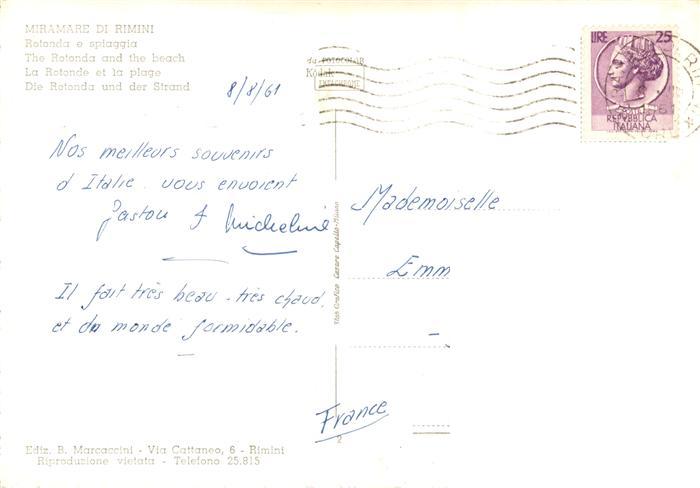 MIRAMARE DI RIMINI
Rotonda e spiaggia
The Rotonda and the beach
La Rotonde et la plage
Die Rotonda und der Strand
8/8/61
da FOTOCOLOR
Kodak
EKTACHROME
LIRE 25
REPUBBLICA
ITALIANA
Nos meilleurs souvenirs
d'Italie. vous envoient
Gaston & Micheline
Il fait très beau - très chaud,
et du monde formidable.
Mademoiselle
Emm
France
Stab. Grafico Cesare Capello - Milano
2
Ediz. B. Marcaccini - Via Cattaneo, 6 - Rimini
Riproduzione vietata - Telefono 25.815